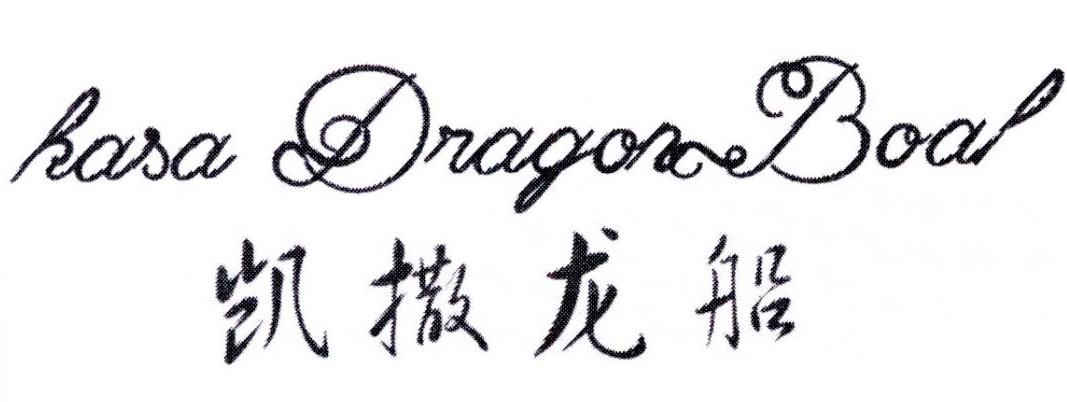 kasa Dragon Boat
凯撒龙船